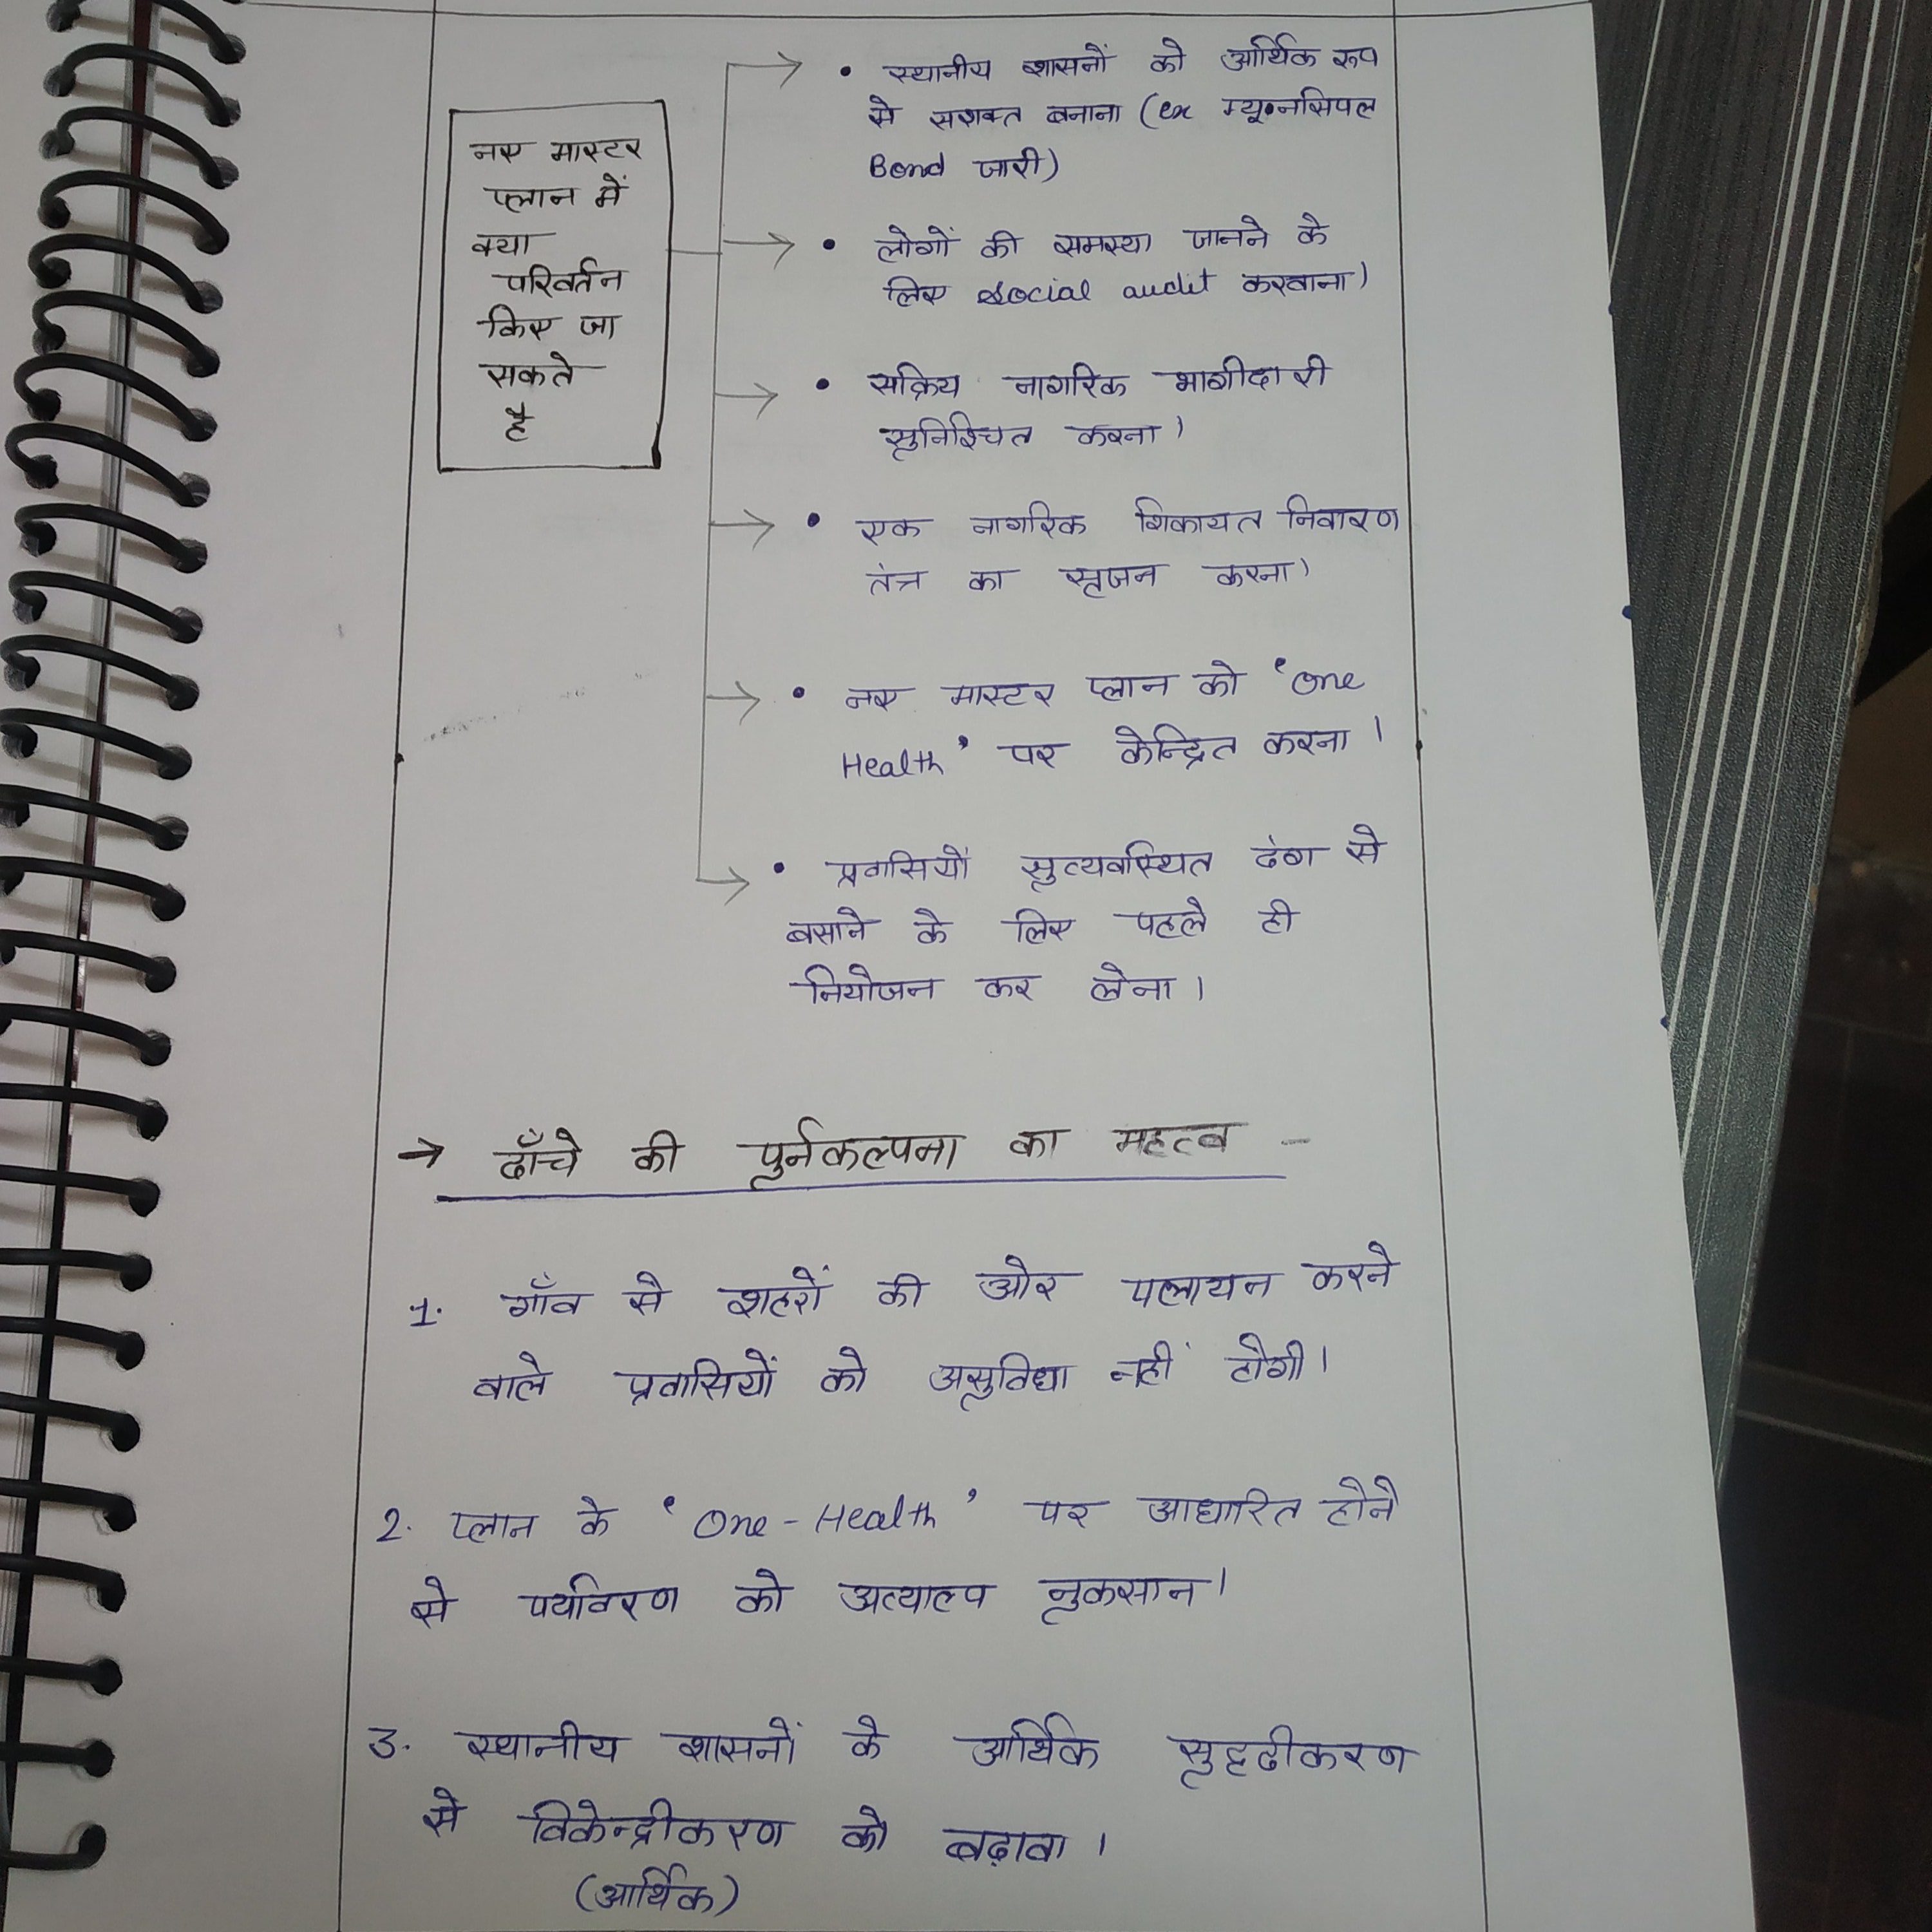 नए मास्टर
प्लान में
क्या
परिवर्तन
किए जा
सकते
है
• स्थानीय शासनों को आर्थिक रूप
से सशक्त बनाना (ex म्यूनसिपल
Bond जारी)
• लोगों की समस्या जानने के
लिए social audit करवाना)
• सक्रिय नागरिक भागीदारी
सुनिश्चित करना।
• एक नागरिक शिकायत निवारण
तंत्र का सृजन करना)
• नए मास्टर प्लान को 'One
Health' पर केन्द्रित करना।
• प्रवासियों सुव्यवस्थित ढंग से
बसाने के लिए पहले ही
नियोजन कर लेना।
→ ढाँचे की पुर्नकल्पना का महत्व –
1. गाँव से शहरों की ओर पलायन करने
वाले प्रवासियों को असुविधा नहीं होगी।
2. प्लान के 'One-Health' पर आधारित होने
से पर्यावरण को अत्याल्प नुकसान।
3. स्थानीय शासनों के आर्थिक सुदृढीकरण
से विकेन्द्रीकरण को बढ़ावा।
(आर्थिक)